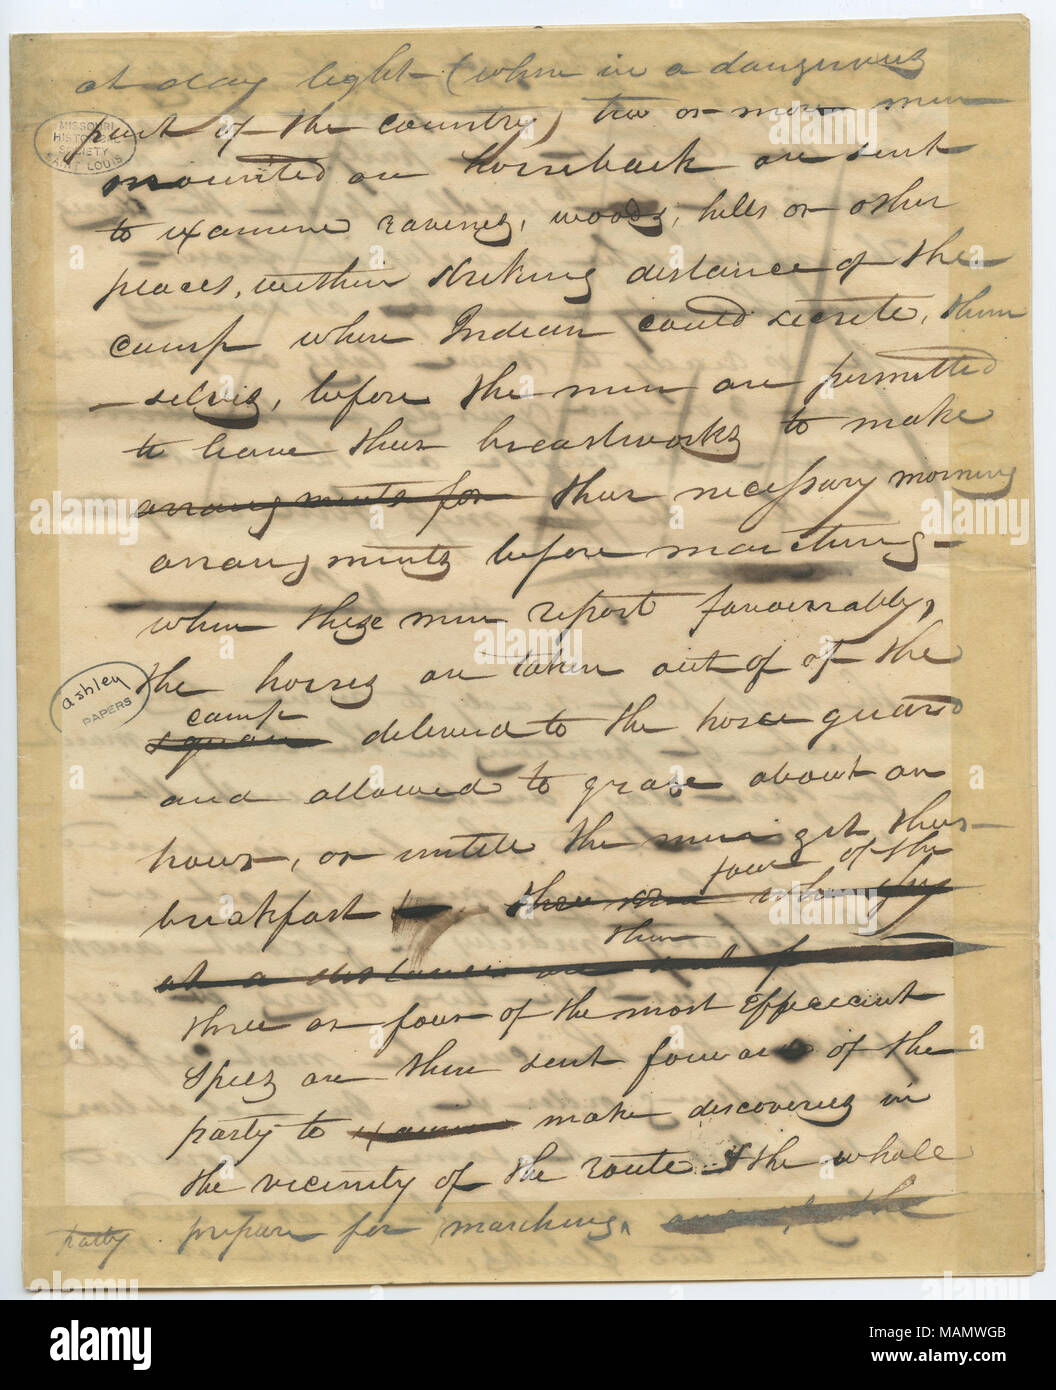 at day light – (when in a dangerous
part of the country) two or more men
mounted on horseback are sent
to examine ravines, woods, hills or other
places, within striking distance of the
camp where Indian could secrete, them
– selvis, before the men are permitted
to leave their breastworks to make
arrangments for their necessary morning
arrangments before marching –
when these men report favourrably,
the horses are taken out of of the
camp
square delivered to the horse guard
and allowed to graze about an
hour, or untill the men get their
four of the
breakfast then send when they
them
at a distance are sent
three or four of the most Effecient
Spies are then sent forward of the
party to examine make discoveries in
the vicinity of the route & the whole
party prepare for marching, the
MISSOURI
HISTORICAL
SOCIETY
SAINT LOUIS
ashley
PAPERS
alamy
alamy
alamy
alamy
alamy
alamy
alamy
alamy
alamy
alamy
Image ID: MAMWGB
www.alamy.com